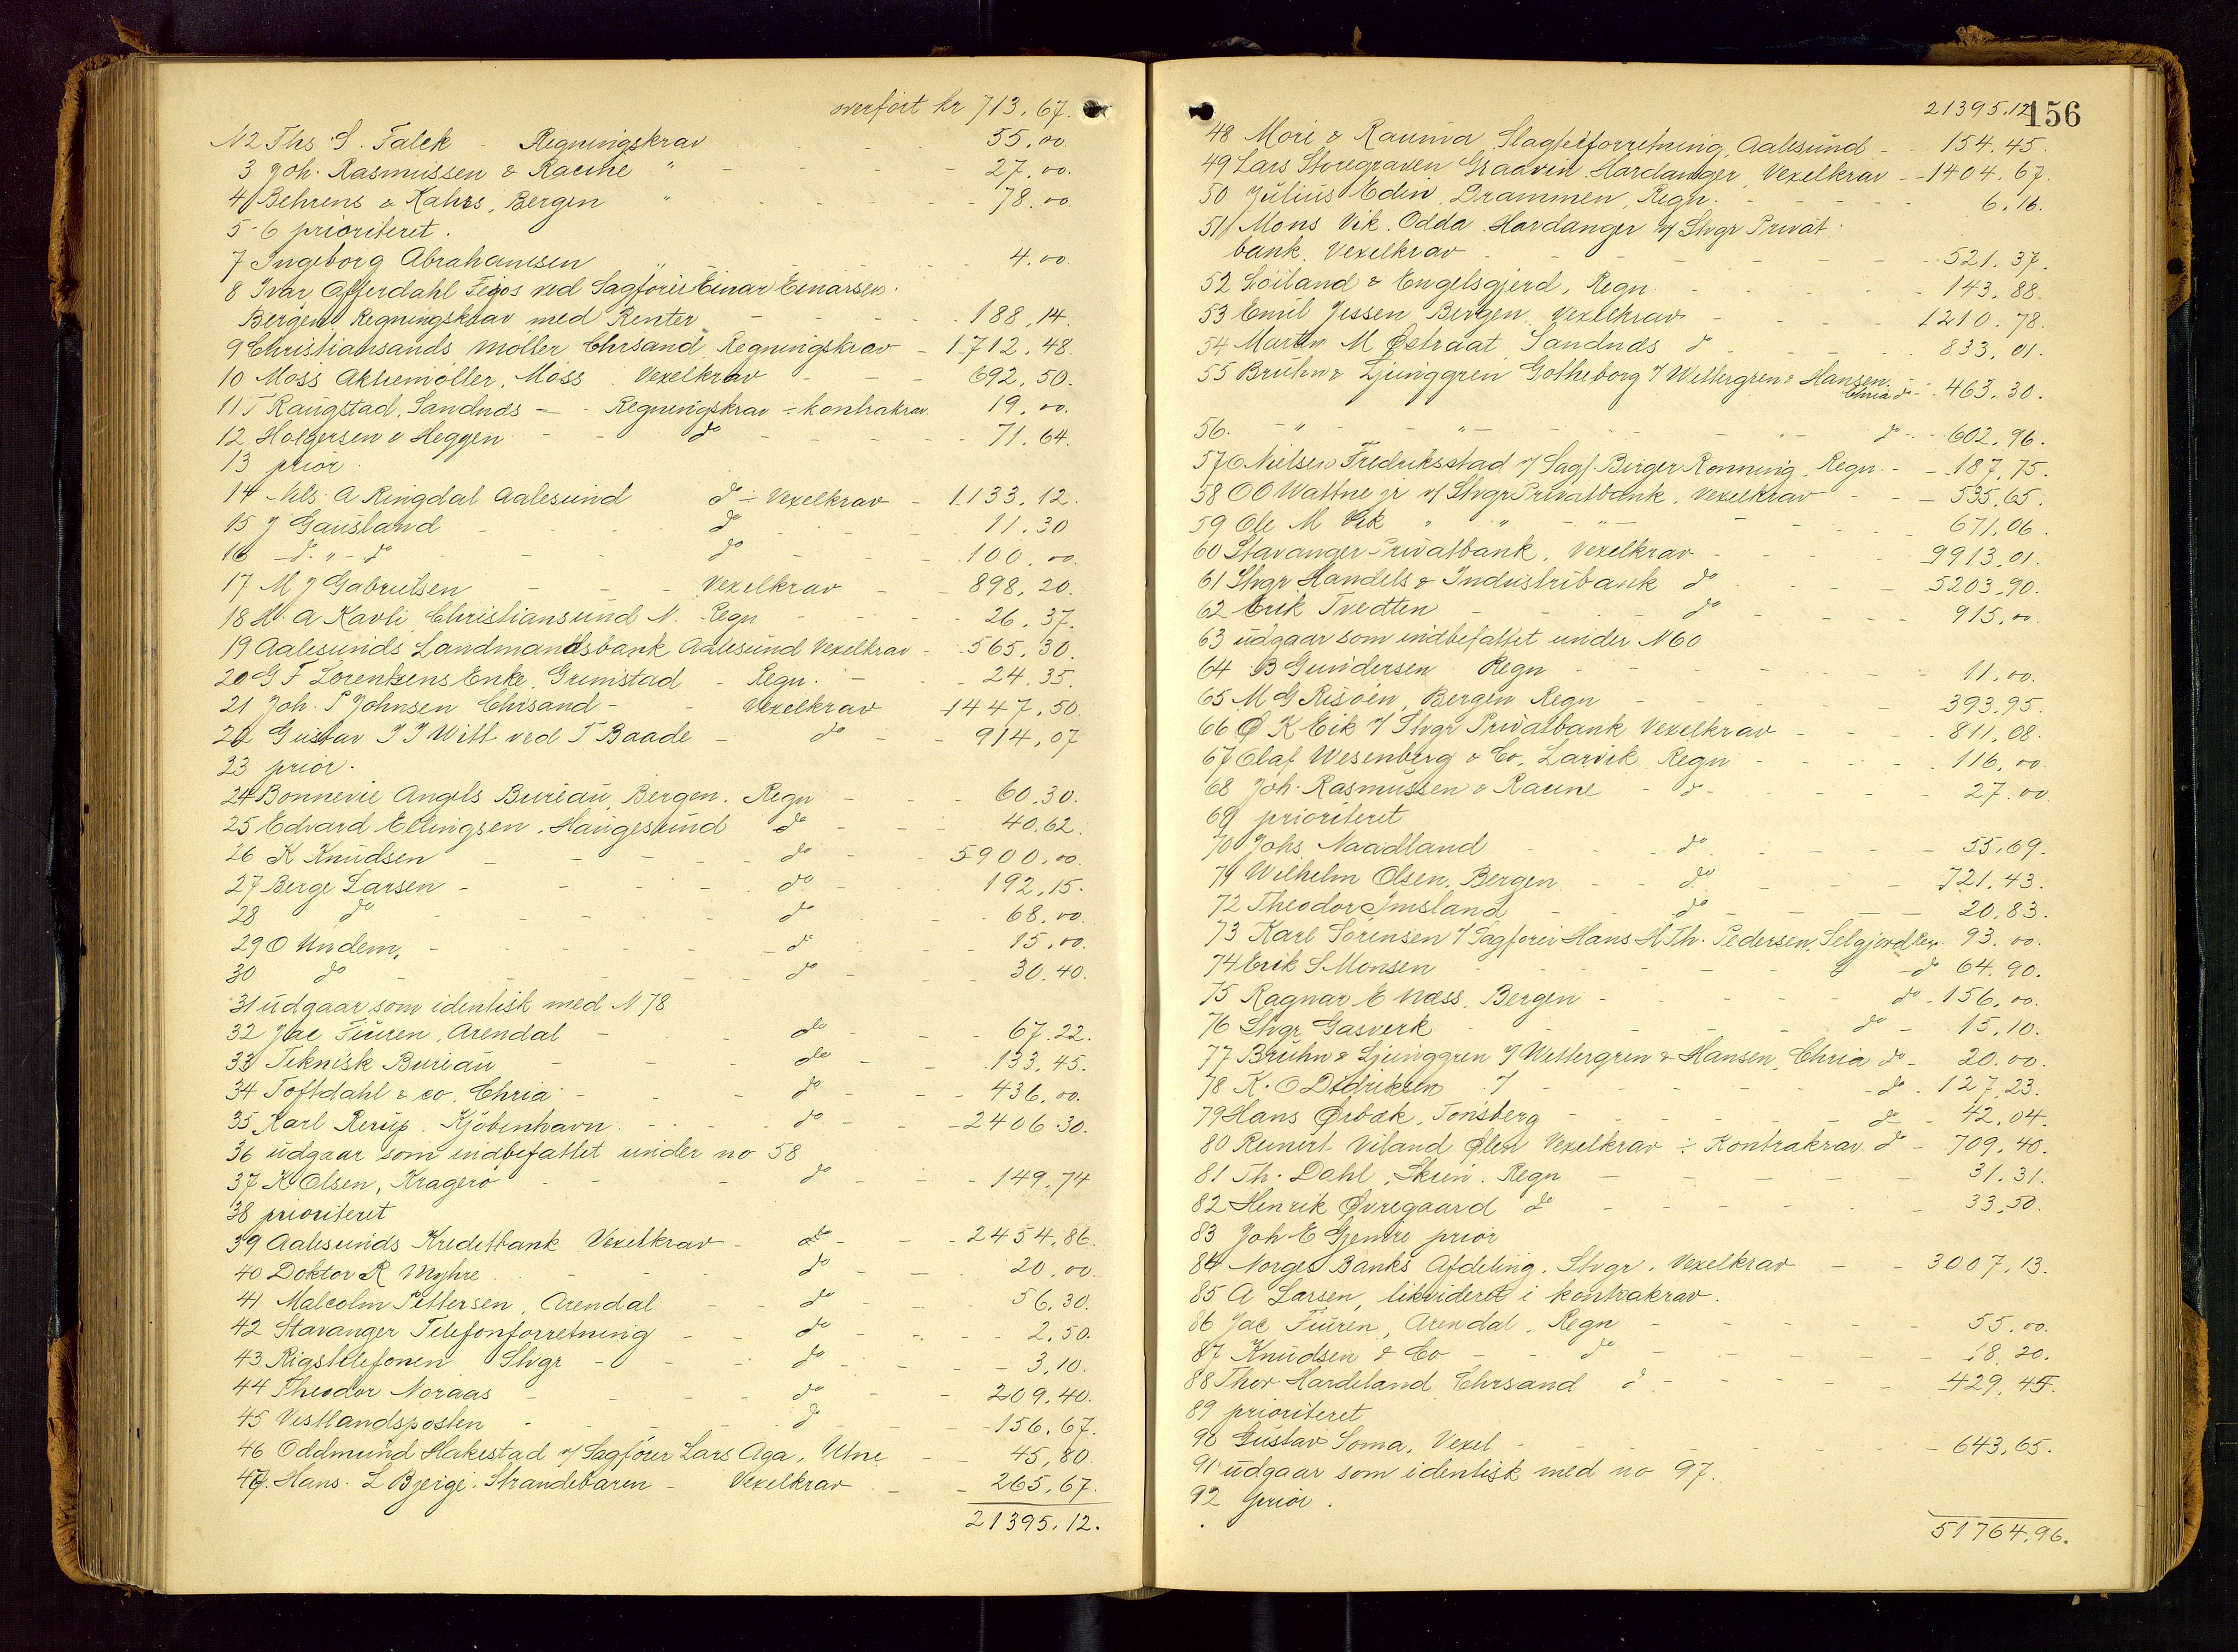 overført kr 713.67.
N2 Ths S. Falck - Regningskrav 55.00.
3 Joh. Rasmussen & Racine " - - - - 27.00.
4 Behrens & Kahrs, Bergen " - - - - 78.00.
5-6 prioriteret.
7 Ingeborg Abrahamsen " - - - 4.00.
8 Ivar Offerdahl Feios ved Sagfører Einar Einarsen.
Bergen. Regningskrav med Renter - - - - 188.14.
9 Christiansands Møller Chrsand Regningskrav - 1712.48.
10 Moss Aktiemøller, Moss. Vexelkrav - - - 692.50.
11 T Raugstad, Sandnds - - Regningskrav ÷ kontrakrav 19.00.
12 Holgersen & Heggen - - do - - - - 71.64.
13 prior.
14 Nils. A Ringdal Aalesund do ÷ Vexelkrav - 1133.12.
15 J Gausland - - - do - - - 11.30
16 - do " - do - - do - - - 100.00
17 M J Gabrielsen - - - Vexelkrav - - 898.20.
18 H. A Kavli Christiansund N. - Regn - - - - 26.37.
19 Aalesunds Landmandsbank Aalesund Vexelkrav - 565.30.
20 G F Lorentzens Enke. Grimstad - Regn. - - - 24.35.
21 Joh. P Johnsen Chrsand - - Vexelkrav 1447.50.
22 Gustav J J Witt ved T Baade - do - - 914.07
23 prior.
24 Bonnevie Angels Bureau, Bergen. Regn - - - 60.30.
25 Edvard Ellingsen. Haugesund do - - - 40.62.
26 K Knudsen - - - - do - - 5900.00.
27 Berge Larsen - - - - do - - 192.15.
28 do - - - - do - - 68.00.
29 O Undem, - - - - do - - 15.00.
30 do - - - - do - - 30.40.
31 udgaar som identisk med N 78
32 Jac Fiüren, Arendal - - do - - - 67.22.
33 Teknisk Bureau - - do - - 133.45.
34 Toftdahl & co. Chria - - - do - - - 436.00.
35 Karl Rerup. Kjøbenhavn. - - - do - - - 2406.30.
36 udgaar som indbefattet under no 58
37 K Olsen, Kragerø - - - - do - - - 149.74
38 prioriteret
39 Aalesunds Kreditbank Vexelkrav - do - - - 2454.86.
40 Doktor R Myhre - - - do - - - 20.00.
41 Malcolm Pettersen, Arendal - - do - - - 56.30.
42 Stavanger Telefonforretning - - do - - - - 2.50.
43 Rigstelefonen Stvgr - - - do - - - - 3.10.
44 Theodor Noraas - - - do - - - 209.40.
45 Vestlandsposten - - - - do - - - 156.67.
46 Oddmund Hakestad v/ Sagfører Lars Aga, Utne - - 45.80.
47. Hans. L Bjerge. Strandebarm - Vexelkrav - - 265.67.
21395.12.
21395.12
156
48 Mori & Rauma, Slagteiforretning, Aalesund - - 154.45.
49 Lars Storegraven Graaven Hardanger, Vexelkrav - 1404.67.
50 Julius Eden, Drammen, Regn. - - - - 6.16.
51 Mons Vik. Odda. Hardanger v/ Stvgr Privat
bank. Vexelkrav - - - - - - 521.37.
52 Löiland & Engelsgjerd, Regn. - - - - 143.88.
53 Emil Jessen Bergen. Vexelkrav - - - - 1210.78.
54 Martin M Østraat Sandnds do - - - - 833.01.
55 Bruhn & Ljunggren Gotheborg v/ Wettergren & Hansen.
Chria do - - 463.30.
56. - " - - " - - - - do - - 602.96.
57 O Nielsen Fredriksstad v/ Sagf. Birger Rønning. Regn - - 187.75.
58 O O Wattne jr v/ Stvgr Privatbank. Vexelkrav - - - 535.65.
59 Ole M Vik " " - " - - - 671.06.
60 Stavanger Privatbank. Vexelkrav - - - - 9913.01.
61 Stvgr Handels & Industribank do - - - 5203.90.
62 Erik Tvedten - - - do - - - - 915.00.
63 udgaar som indbefattet under N 60
64 B Gundersen Regn - - - - - 11.00.
65 M G Risöen, Bergen Regn - - - - - 393.95.
66 Ø K Eik v/ Stvgr Privatbank Vexelkrav - - - - 811.08.
67 Olaf Wesenberg & Co, Larvik Regn - - - - 116.00.
68 Joh. Rasmussen & Racine - do - - - - 27.00
69 prioriteret
70 Johs Naadland - - do - - - - 55.69.
71 Wilhelm Olsen, Bergen. - - do - - - - 721.43.
72 Theodor Imsland - - do - - - - 20.83.
73 Karl Sörensen v/ Sagfører Hans H Th. Pedersen, Selgjord Regn. 93.00.
74 Erik S Monsen - - - - - - - do 64.90.
75 Ragnar E Næss, Bergen - - - - - do - 156.00.
76 Stvgr Gasverk - - - - - - do - 15.10.
77 Bruhn & Ljunggren v/ Wettergren & Hansen, Chria do - 20.00.
78 K. O Didriksen v/ - - - - - - do - 127.23.
79 Hans Ørbæk, Tønsberg - - - - - do - 42.04.
80 Reinert Viland Ølen Vexelkrav ÷ Kontrakrav do - 709.40.
81 Th. Dahl, Skien. Regn - - - - - 31.31.
82 Henrik Øvregaard do - - - - - 33.50.
83 Joh E Gjemre prior
84 Norges Banks Afdeling. Stvgr. Vexelkrav - - 3007.13.
85 A Larsen, likvideret i kontrakrav.
86 Jac Fiüren, Arendal. Regn - - - - - 55.00.
87 Knudsen & Co - - do - - - - 18.20.
88 Thor Hardeland Chrsand do - - - - - 429.45.
89 prioriteret
90 Gustav Soma, Vexel - - - - - - 643.65.
91 udgaar som identisk med no 97.
92 prior.
51764.96.